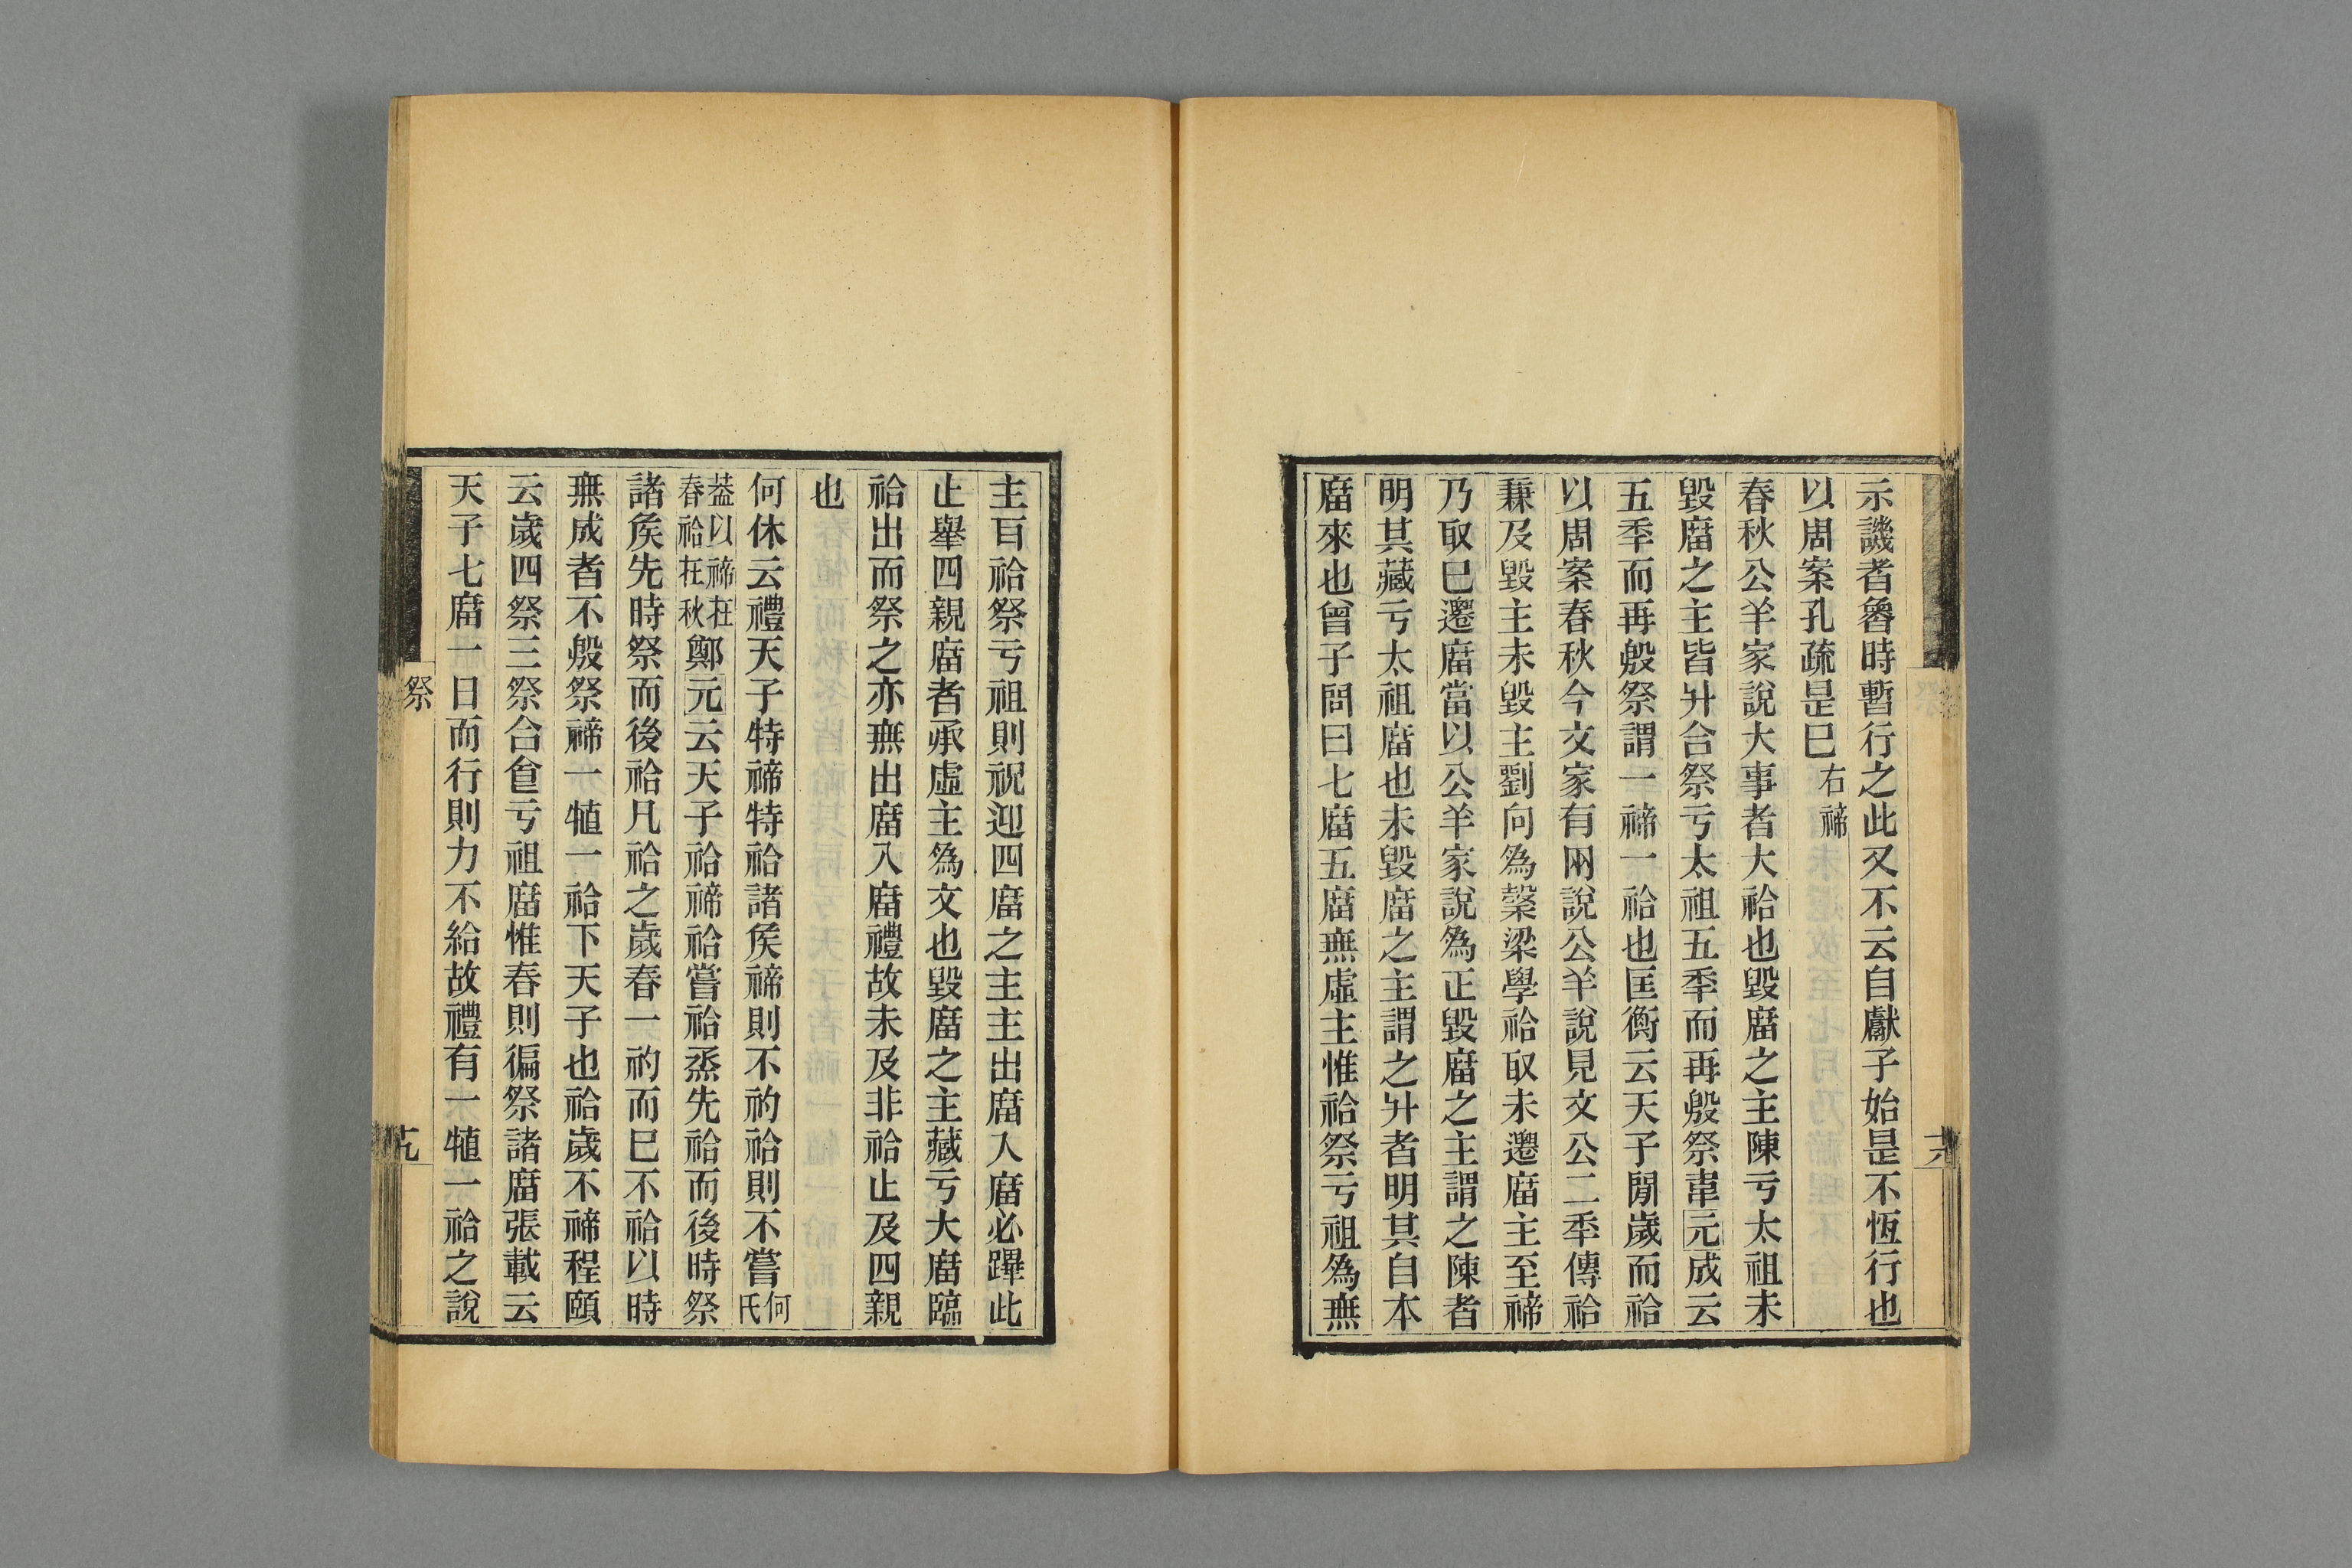 示譏者魯時暫行之此又不云自獻子始是不恆行也
以周案孔疏是巳右禘
春秋公羊家說大事者大祫也毀庿之主陳亏太祖未
毀庿之主皆升合祭亏太祖五秊而再殷祭韋元成云
五秊而再殷祭謂一禘一祫也匡衡云天子閒歲而祫
以周案春秋今文家有兩說公羊說見文公二秊傳祫
兼及毀主未毀主劉向爲榖梁學祫取未遷庿主至禘
乃取巳遷庿當以公羊家說爲正毀庿之主謂之陳者
明其藏亏太祖庿也未毀庿之主謂之升者明其自本
庿來也曾子問曰七庿五庿無虛主惟祫祭亏祖爲無
十八
主百祫祭亏祖則祝迎四庿之主主出庿入庿必蹕此
止舉四親庿者承虛主爲文也毀庿之主藏亏大庿臨
祫出而祭之亦無出庿入庿禮故未及非祫止及四親
也
何休云禮天子特禘特祫諸侯禘則不礿祫則不嘗何氏
葢以禘在春祫在秋鄭元云天子祫禘祫嘗祫烝先祫而後時祭
諸侯先時祭而後祫凡祫之歲春一礿而巳不祫以時
無成者不殷祭禘一犆一祫下天子也祫歲不禘程頤
云歲四祭三祭合食亏祖庿惟春則徧祭諸庿張載云
天子七庿一日而行則力不給故禮有一犆一祫之說
祭
十九